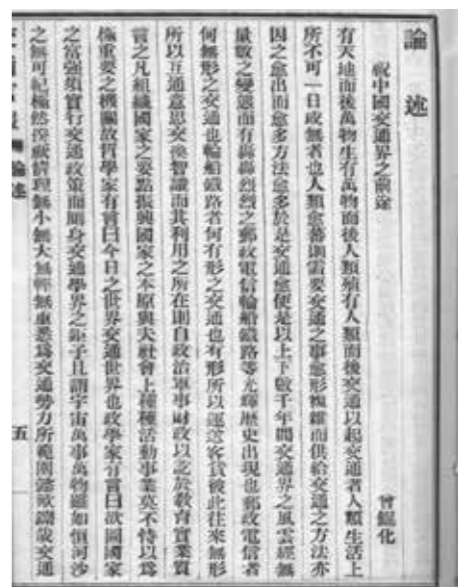 論述
祝中國交通界之前途
曾鯤化
有天地而後萬物生有萬物而後人類殖有人類而後交通以起交通者人類生活上
所不可一日或無者也人類愈蕃則需要交通之事愈形複雜而供給交通之方法亦
因之愈出而愈多方法愈多於是交通愈便是以上下數千年間交通界之風雲經無
量數之變態而有轟轟烈烈之郵政電信輪船鐵路等光輝歷史出現也郵政電信者
何無形之交通也輪船鐵路者何有形之交通也有形所以運送客貨彼此往來無形
所以互通意思交換智識而其利用之所在則自政治軍事財政以迄於教育實業質
言之凡組織國家之要點振興國家之本原與夫社會上種種活動事業莫不恃以爲
極重要之機關故哲學家有言曰今日之世界交通世界也政學家有言曰欲圖國家
之富強須實行交通政策而廁身交通學界之鉅子且謂宇宙萬事萬物雖如恒河沙
之無可紀極然按厥情理無小無大無輕無重悉爲交通勢力所範圍懿歟鑠哉交通
論述
五